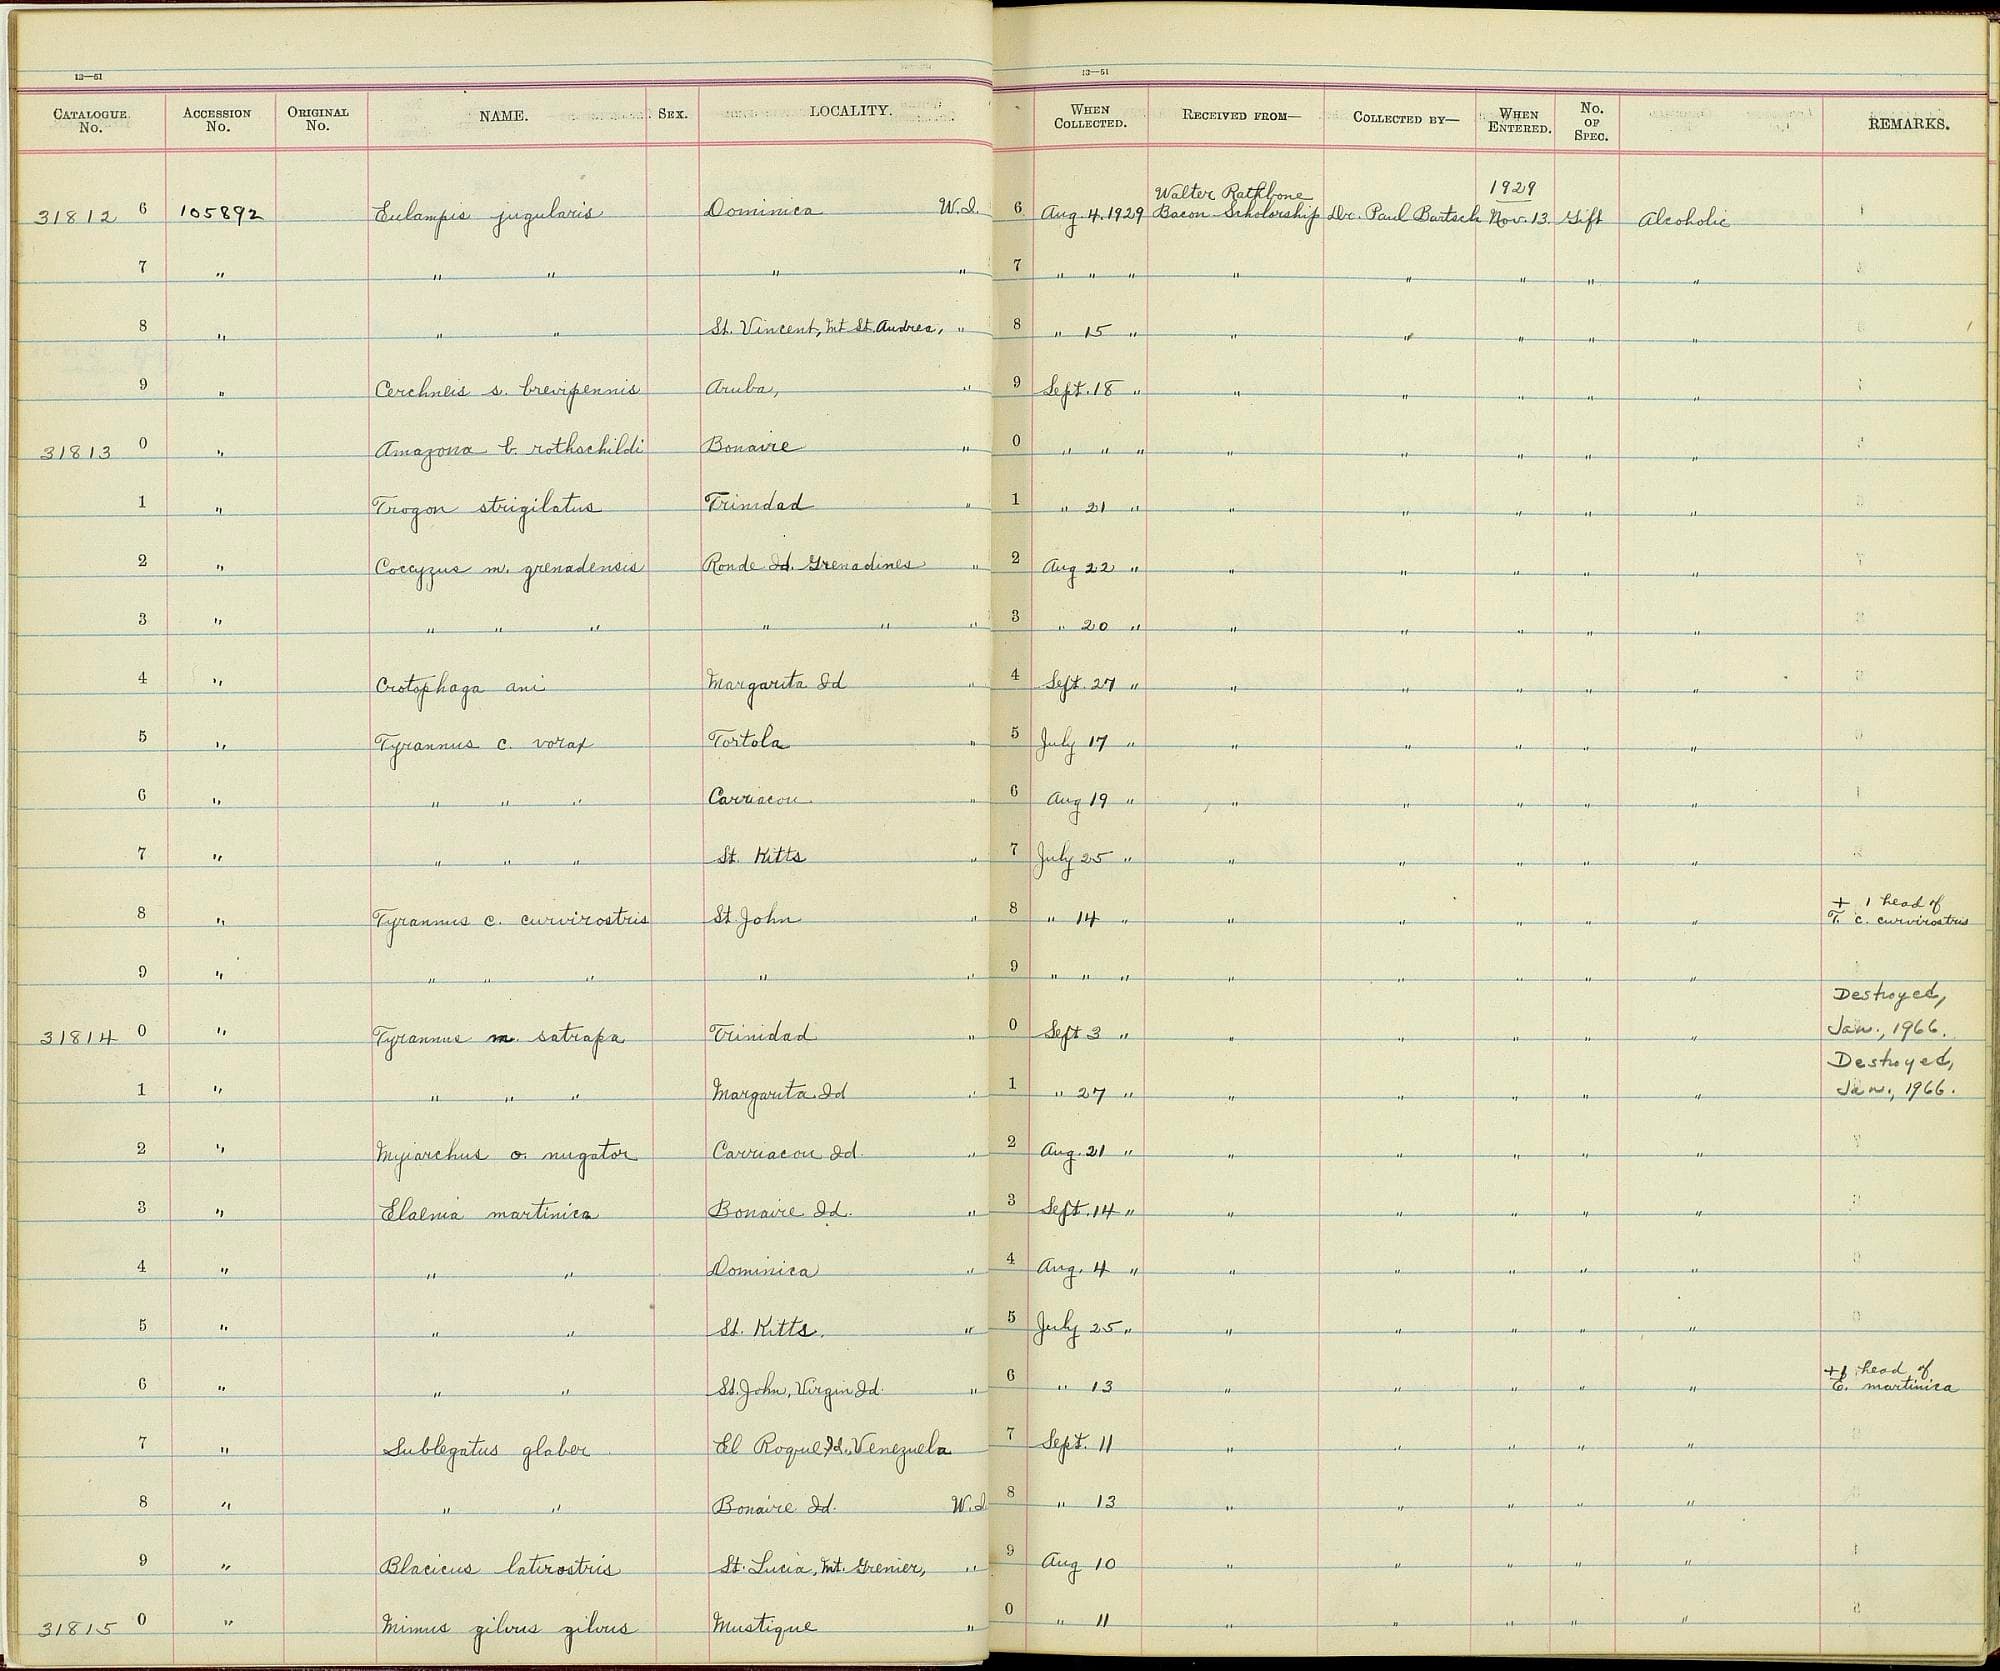 13—51
13—51
CATALOGUE No. ACCESSION No. ORIGINAL No. NAME. SEX. LOCALITY. WHEN COLLECTED. RECEIVED FROM— COLLECTED BY— WHEN ENTERED. No. OF SPEC. REMARKS.
31812 6 105892 Eulampis jugularis Dominica W.I. 6 Aug. 4. 1929 Walter Rathbone Bacon Scholarship Dr. Paul Bartsch 1929 Nov. 13. Gift Alcoholic
7 " " " " " 7 " " " " " " " "
8 " " " St. Vincent, Mt St. Andrea, " 8 " 15 " " " " " "
9 " Cerchneis s. brevipennis Aruba, " 9 Sept. 18 " " " " " "
31813 0 " Amazona b. rothschildi Bonaire " 0 " " " " " " " "
1 " Trogon strigilatus Trinidad " 1 " 21 " " " " " "
2 " Coccyzus m. grenadensis Ronde Id. Grenadines " 2 Aug 22 " " " " " "
3 " " " " " " " 3 " 20 " " " " " "
4 " Crotophaga ani Margarita Id " 4 Sept. 27 " " " " " "
5 " Tyrannus c. vorax Tortola " 5 July 17 " " " " " "
6 " " " " Carriacou " 6 Aug 19 " " " " " "
7 " " " " St. Kitts " 7 July 25 " " " " " "
8 " Tyrannus c. curvirostris St. John " 8 " 14 " " " " " " + 1 head of T. c. curvirostris
9 " " " " " " 9 " " " " " " " "
31814 0 " Tyrannus m. satrapa Trinidad " 0 Sept 3 " " " " " " Destroyed, Jan., 1966.
1 " " " " Margarita Id " 1 " 27 " " " " " " Destroyed, Jan., 1966.
2 " Myiarchus o. nugator Carriacou Id. " 2 Aug. 21 " " " " " "
3 " Elaenia martinica Bonaire Id. " 3 Sept. 14 " " " " " "
4 " " " Dominica " 4 Aug. 4 " " " " " "
5 " " " St. Kitts. " 5 July 25 " " " " " "
6 " " " St. John, Virgin Id. " 6 " 13 " " " " " +1 head of E. martinica
7 " Sublegatus glaber El Roque Id., Venezuela 7 Sept. 11 " " " " "
8 " " " Bonaire Id. W.I. 8 " 13 " " " " "
9 " Blacicus latirostris St. Lucia, Mt. Grenier, " 9 Aug 10 " " " " "
31815 0 " Mimus gilvus gilvus Mustique " 0 " 11 " " " " "